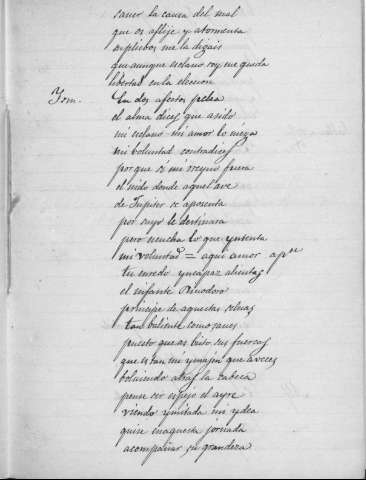 saver la causa del mal
que os aflije y atormenta
suplicoos me la digais
que aunque esclavo soy me queda
libertad en la eleccion
Ysm. En dos afectos pelea
el alma dices, que asido
mi esclavo mi amor lo niega
mi voluntad contradice
porque si mi reyno fuera
el nido donde aquel ave
de Jupiter se aposenta
por suyo le destinara
pero escucha lo que yntenta
mi voluntad = aqui amor apte
tu enredo yncapaz alientas
el infante
principe de aquestas selvas
tan baliente como saves
puesto que as bisto sus fuerzas
que es tan mi ymajen que a veces
bolviendo atras la cabeza
pense ser espejo el ayre
viendo ymitada mi ydea
quiso en aquesta jornada
acompañar su grandeza